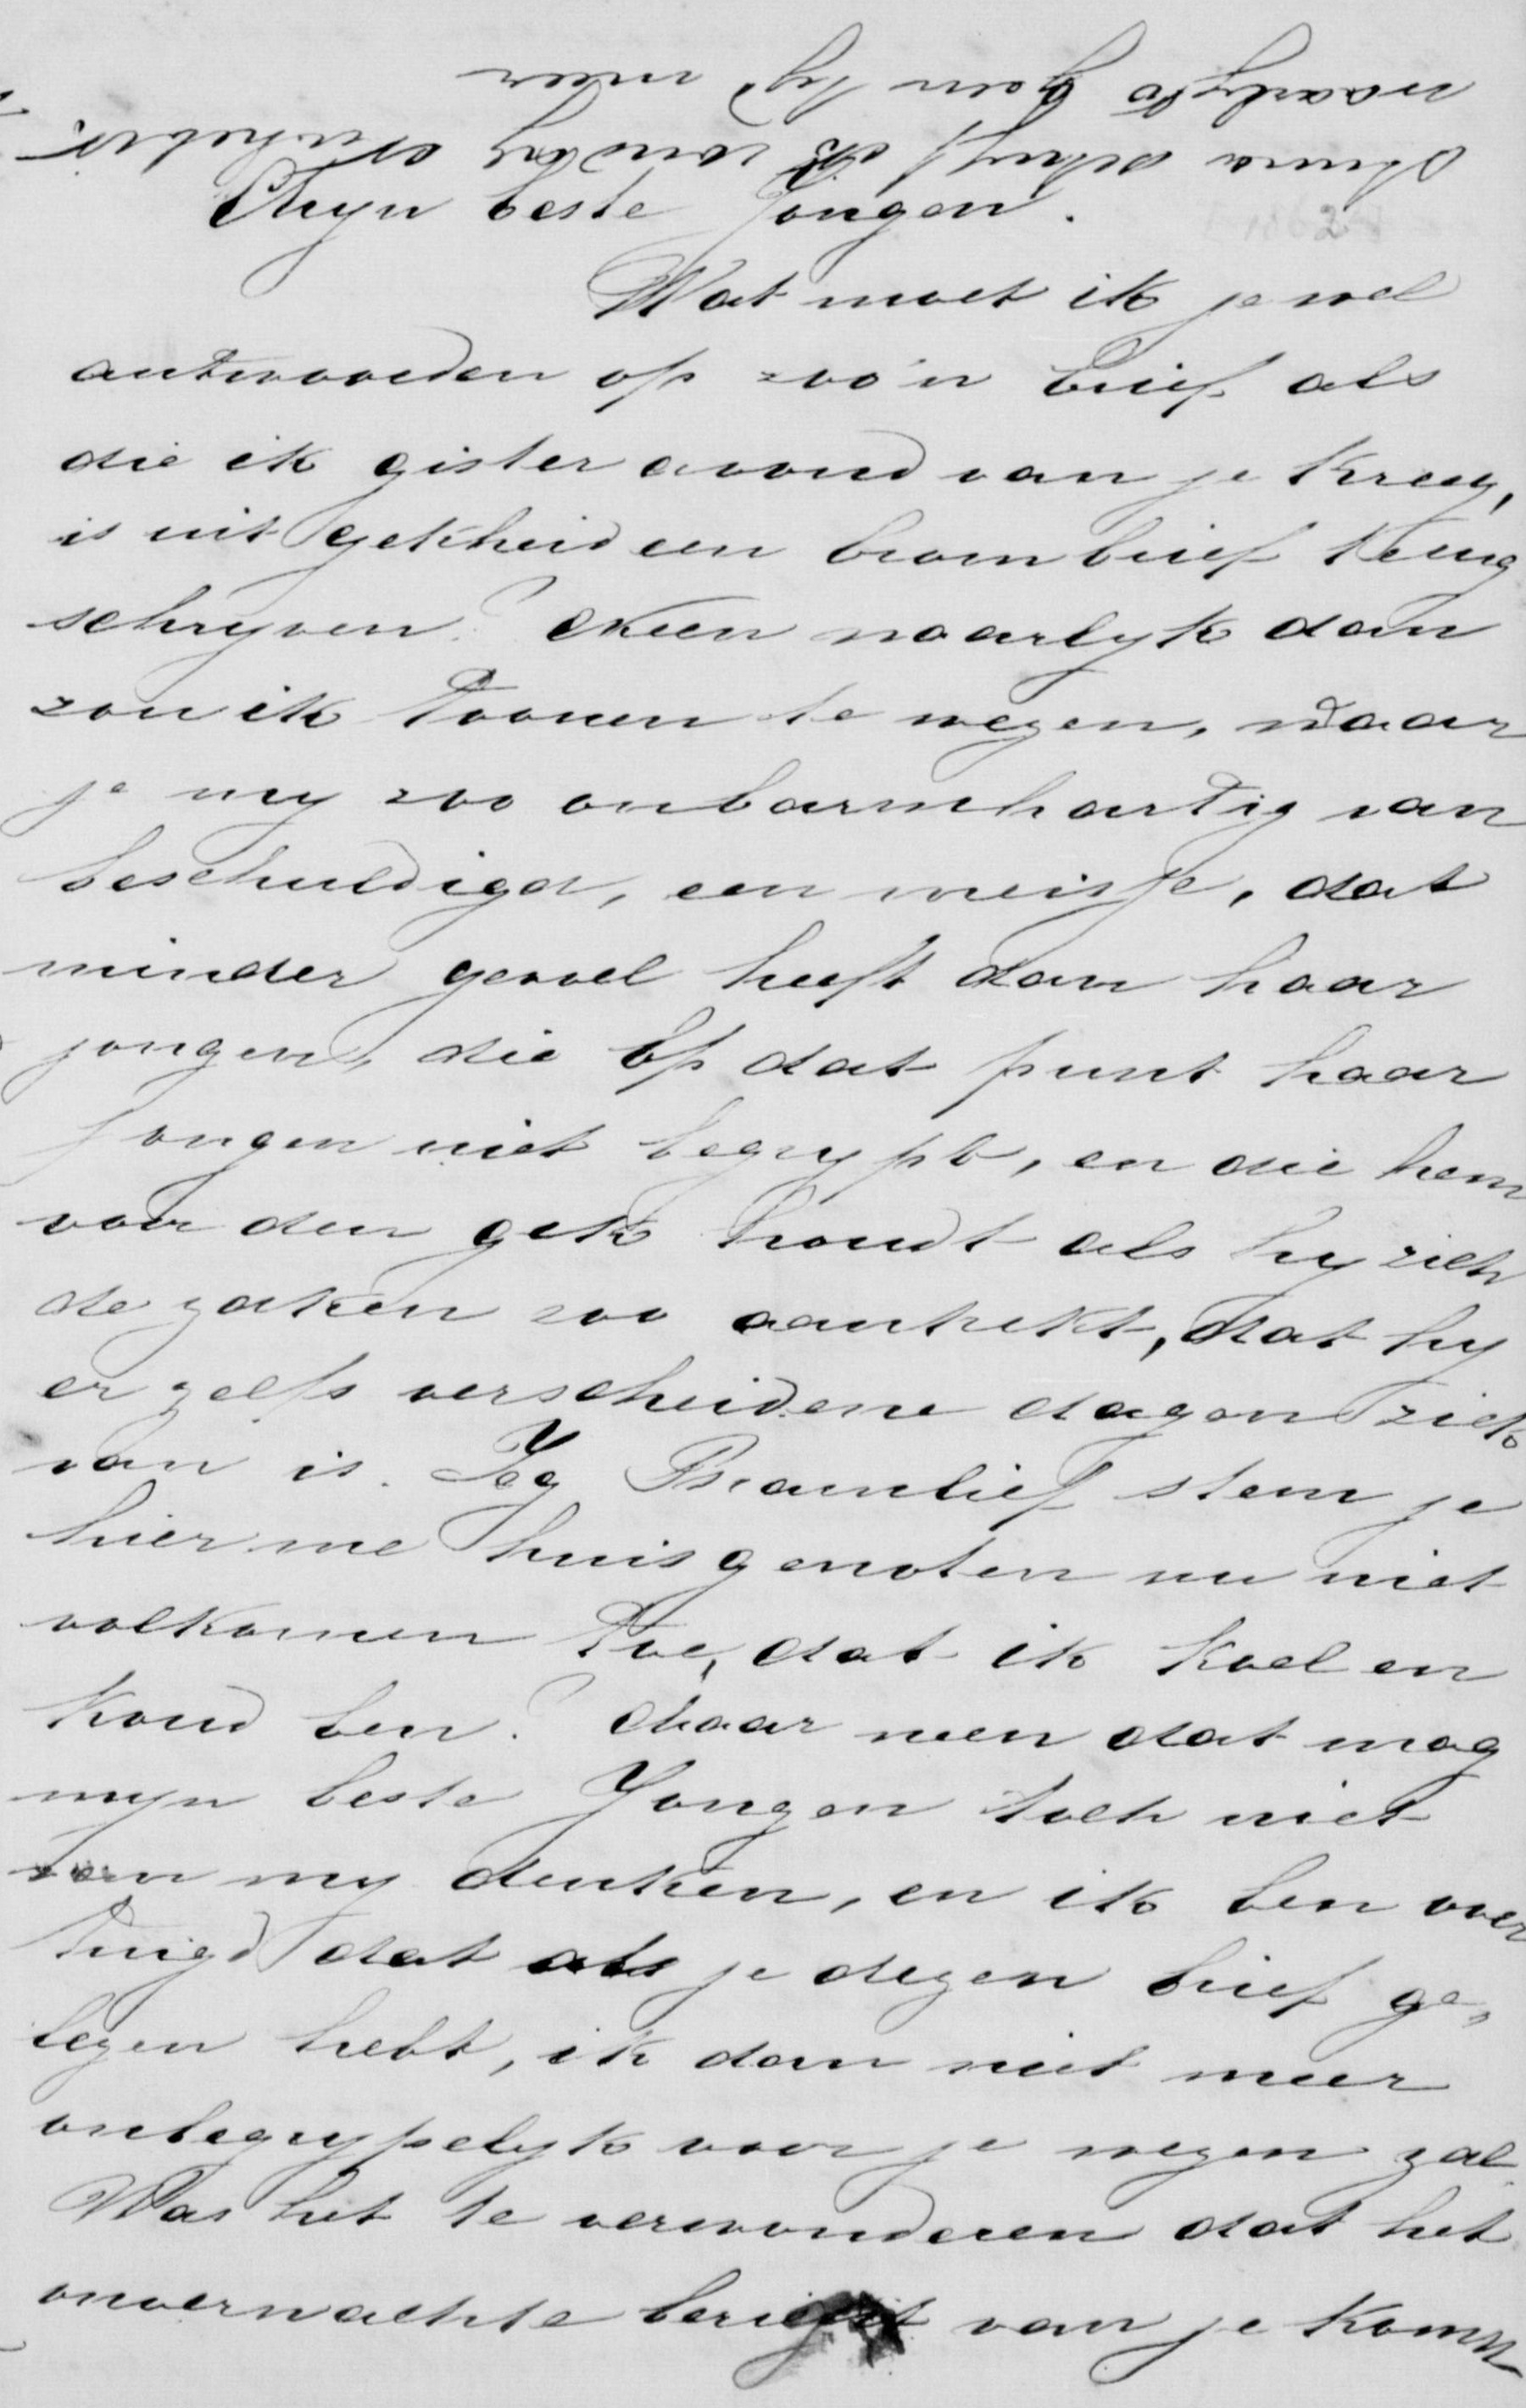 Anna schryf ik vandag
waarlyk geen tyd meer
Myn beste Jongen.
Wat moet ik je wel
antwoorden op zoo'n brief als
die ik gister avond van je kreeg,
is uit gekheid een brombrief terug
schryven? Neen waarlyk dan
zou ik toonen te wezen, waar
je my zoo onbarmhartig van
beschuldigd, een meisje, dat
minder gevoel heeft dan haar
jongen, die op dat punt haar
jongen niet begrypt, en die hem
voor den gek houdt als hy zich
de zaken zoo aantrekt, dat hy
er zelfs verscheidene dagen ziek
van is. Zeg Bramlief stem je
hier me huisgenoten nu niet
volkomen toe, dat ik koel en
koud ben? Maar neen dat mag
myn beste Jongen toch niet
van my denken, en ik ben over
tuigd dat als je dezen brief ge„
lezen hebt, ik dan niet meer
onbegrypelyk voor je wezen zal.
Was het te verwonderen dat het
onverwachte bericht van je komst